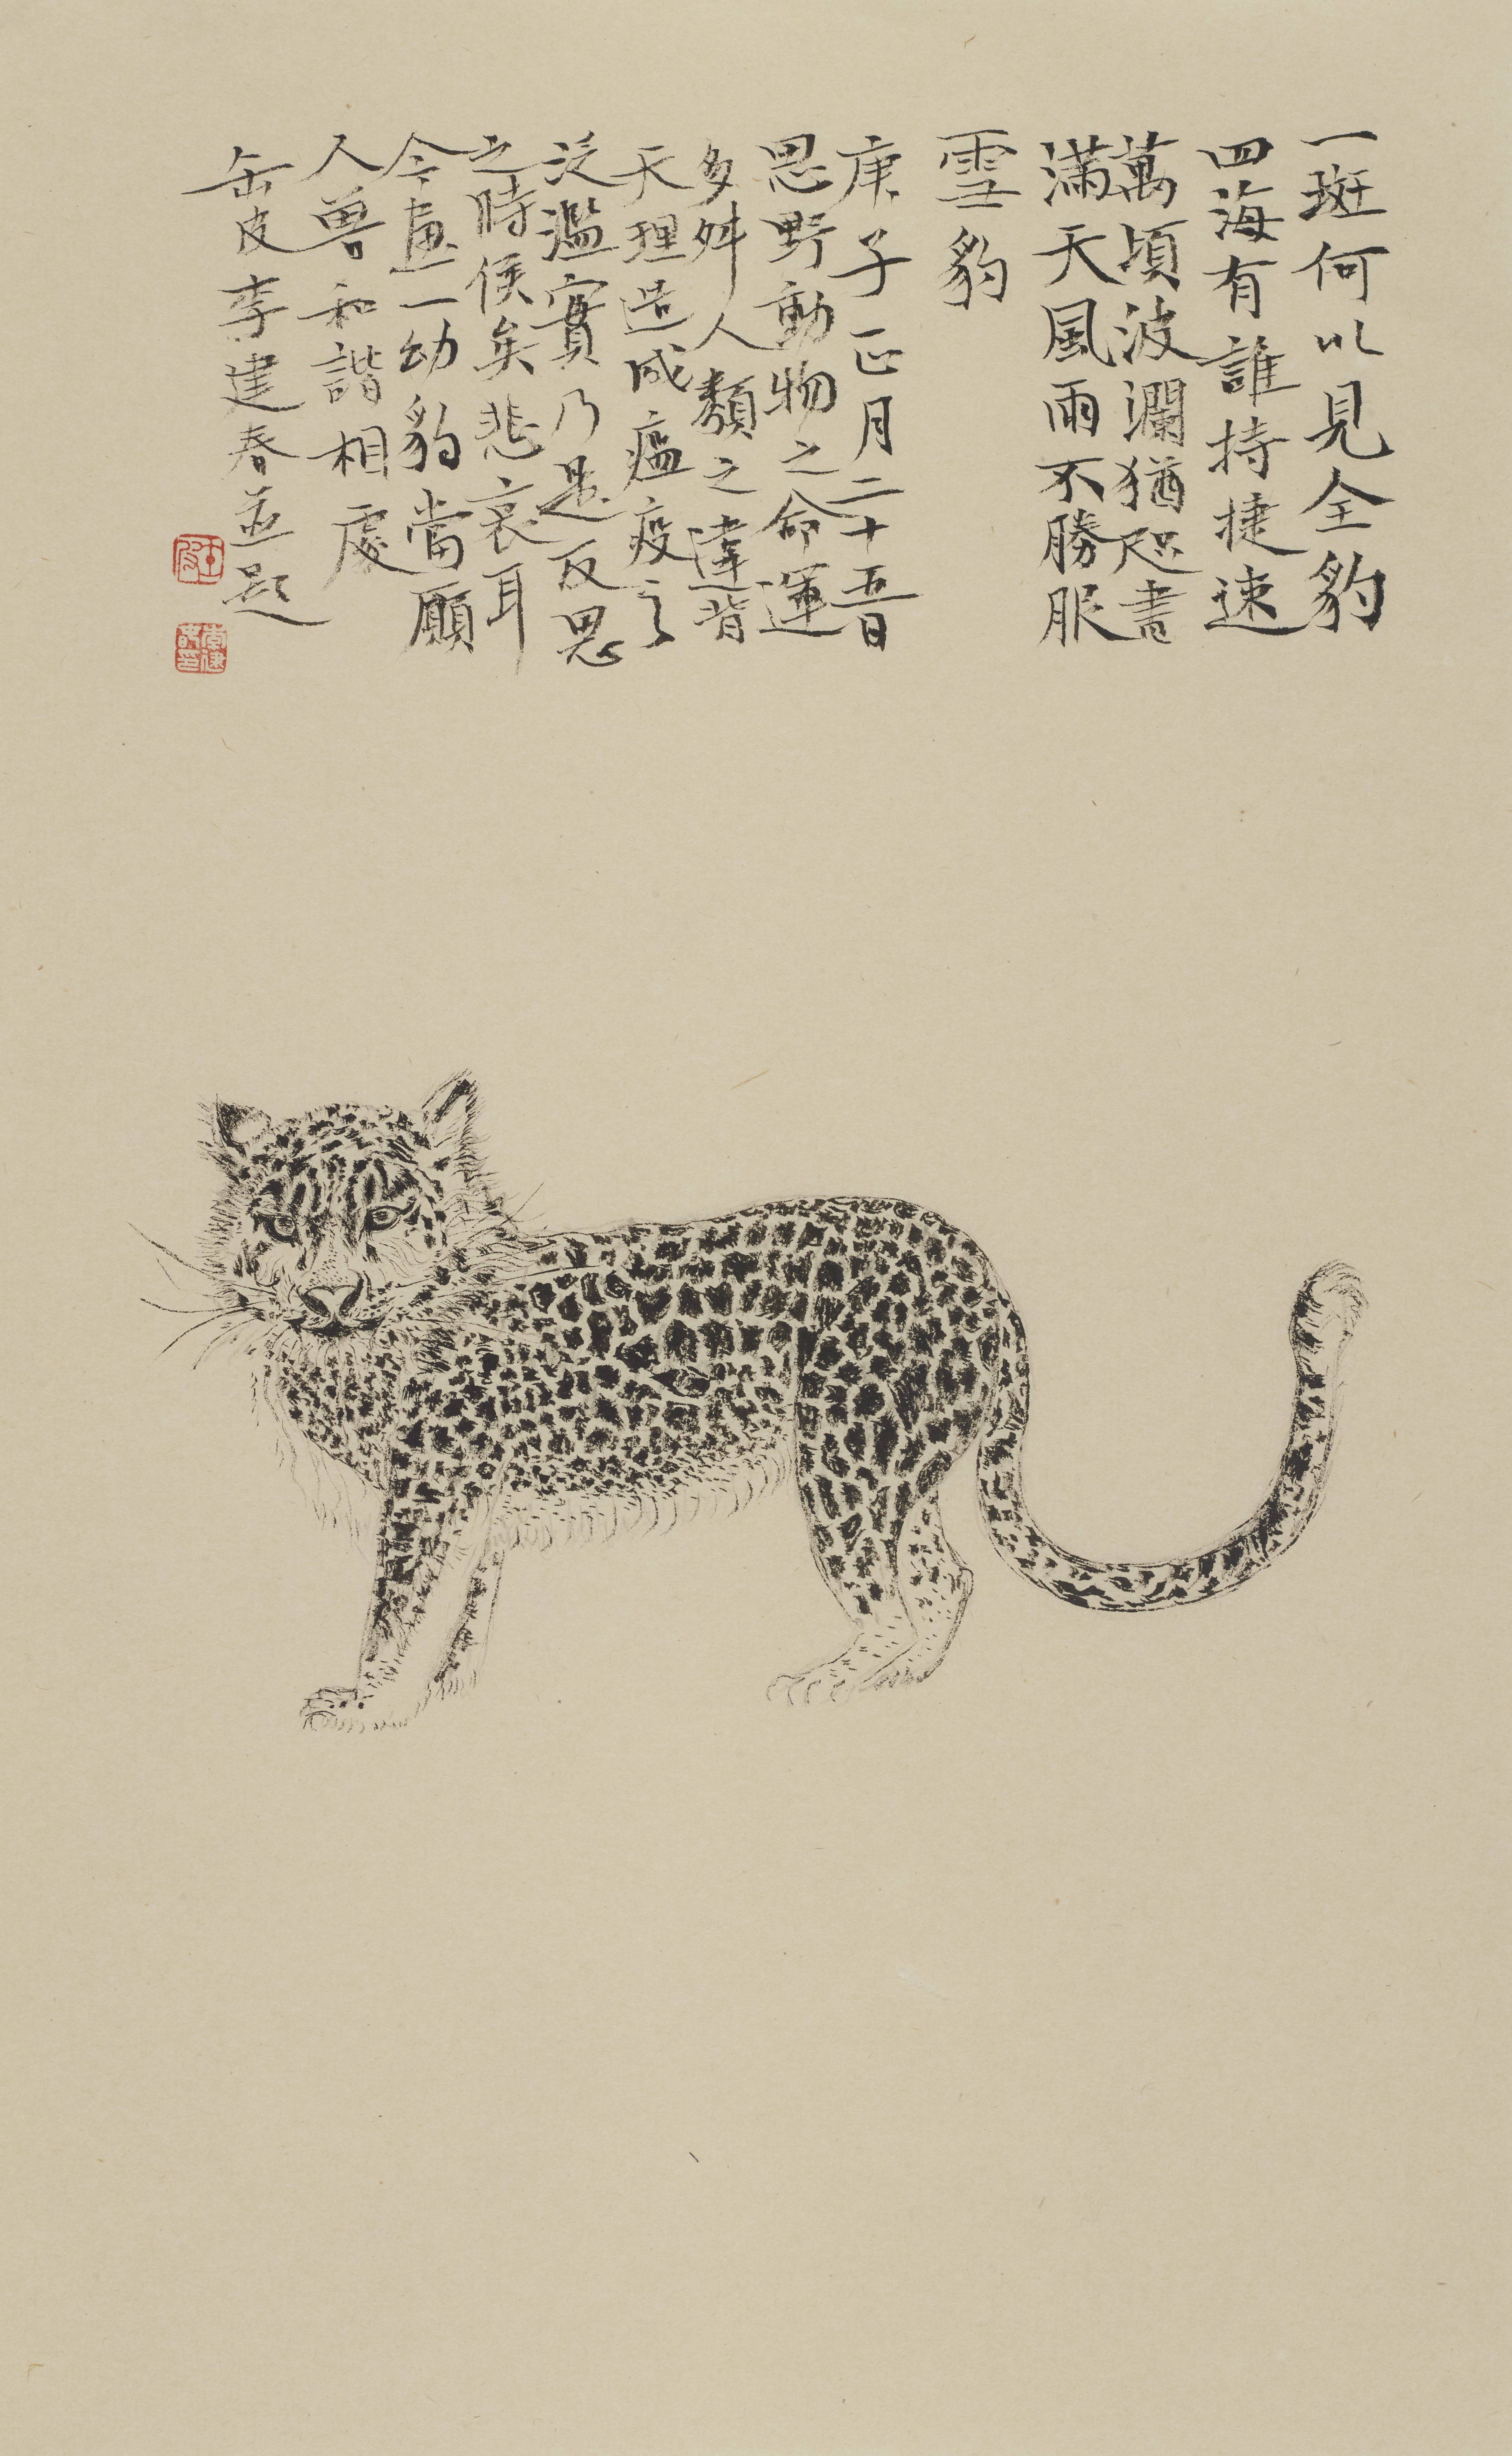 一斑何以見全豹
四海有誰持捷速
萬頃波瀾猶咫書
滿天風雨不勝服
雪豹
庚子正月二十五日
思野動物之命運
多舛人類之違背
天理造成瘟疫之
泛濫實乃是反思
之時候矣悲哀耳
今畫一幼豹當願
人兽和諧相處
缶皮李建春並題
李建春印